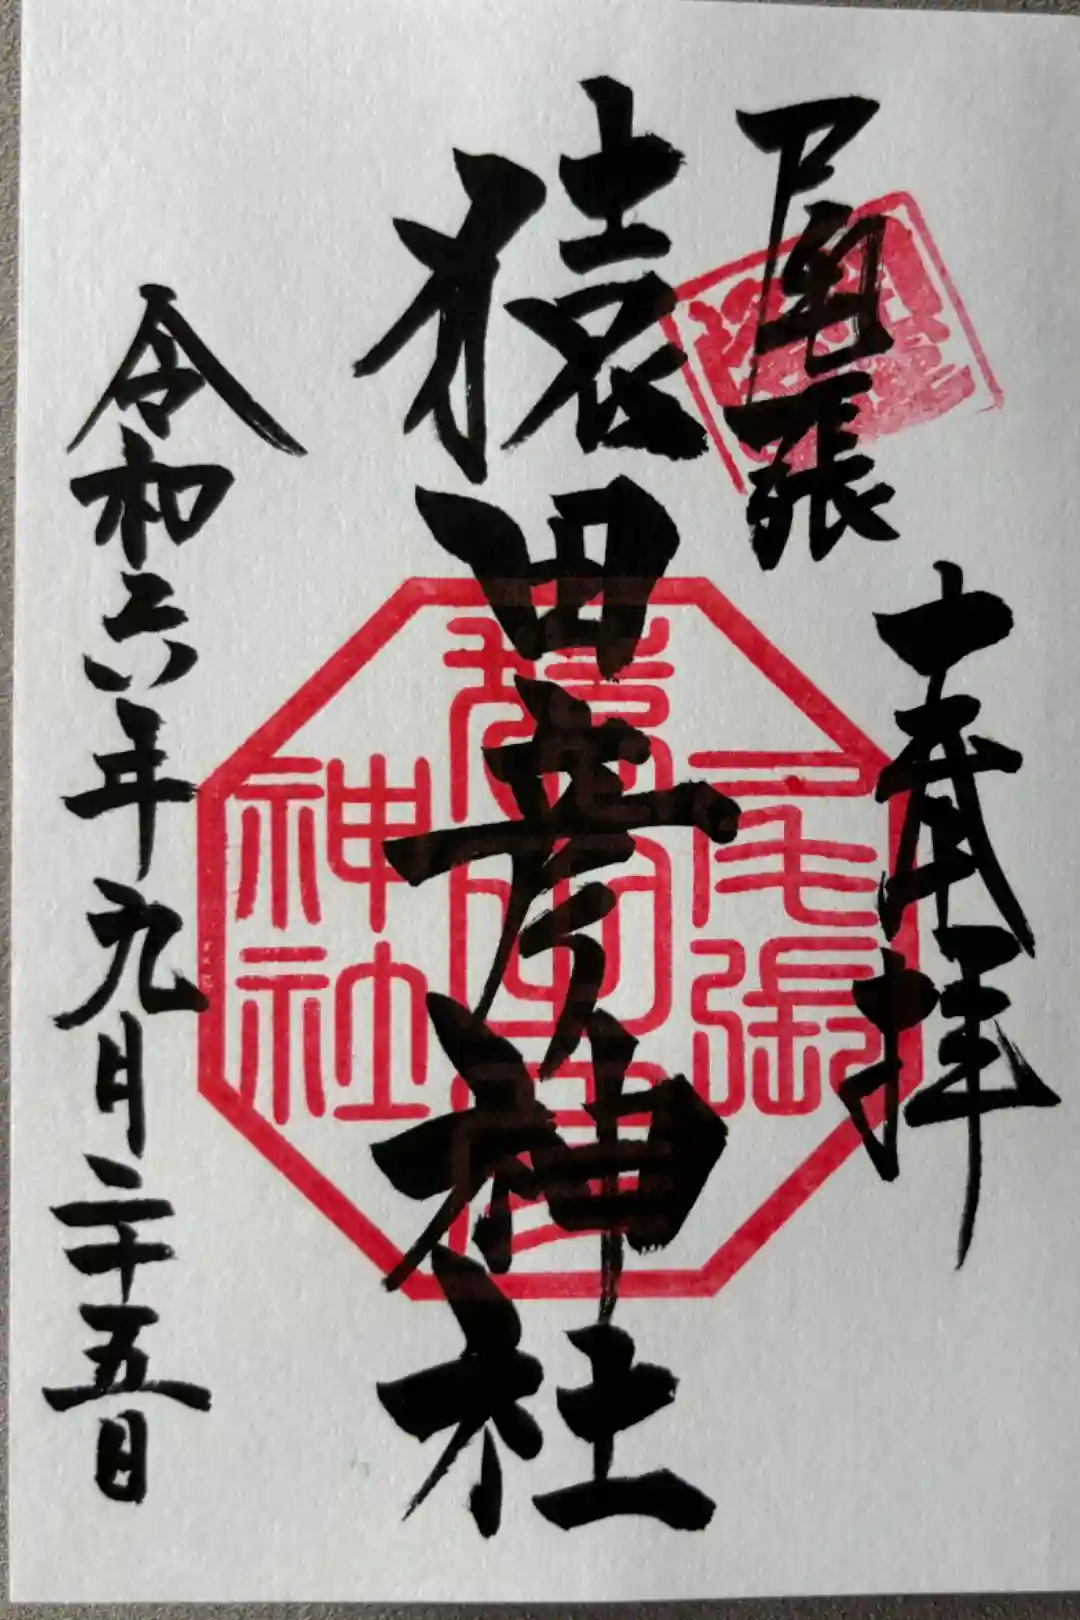 尾張
奉拝
猿田彦神社
令和六年九月二十五日
尾張
神社